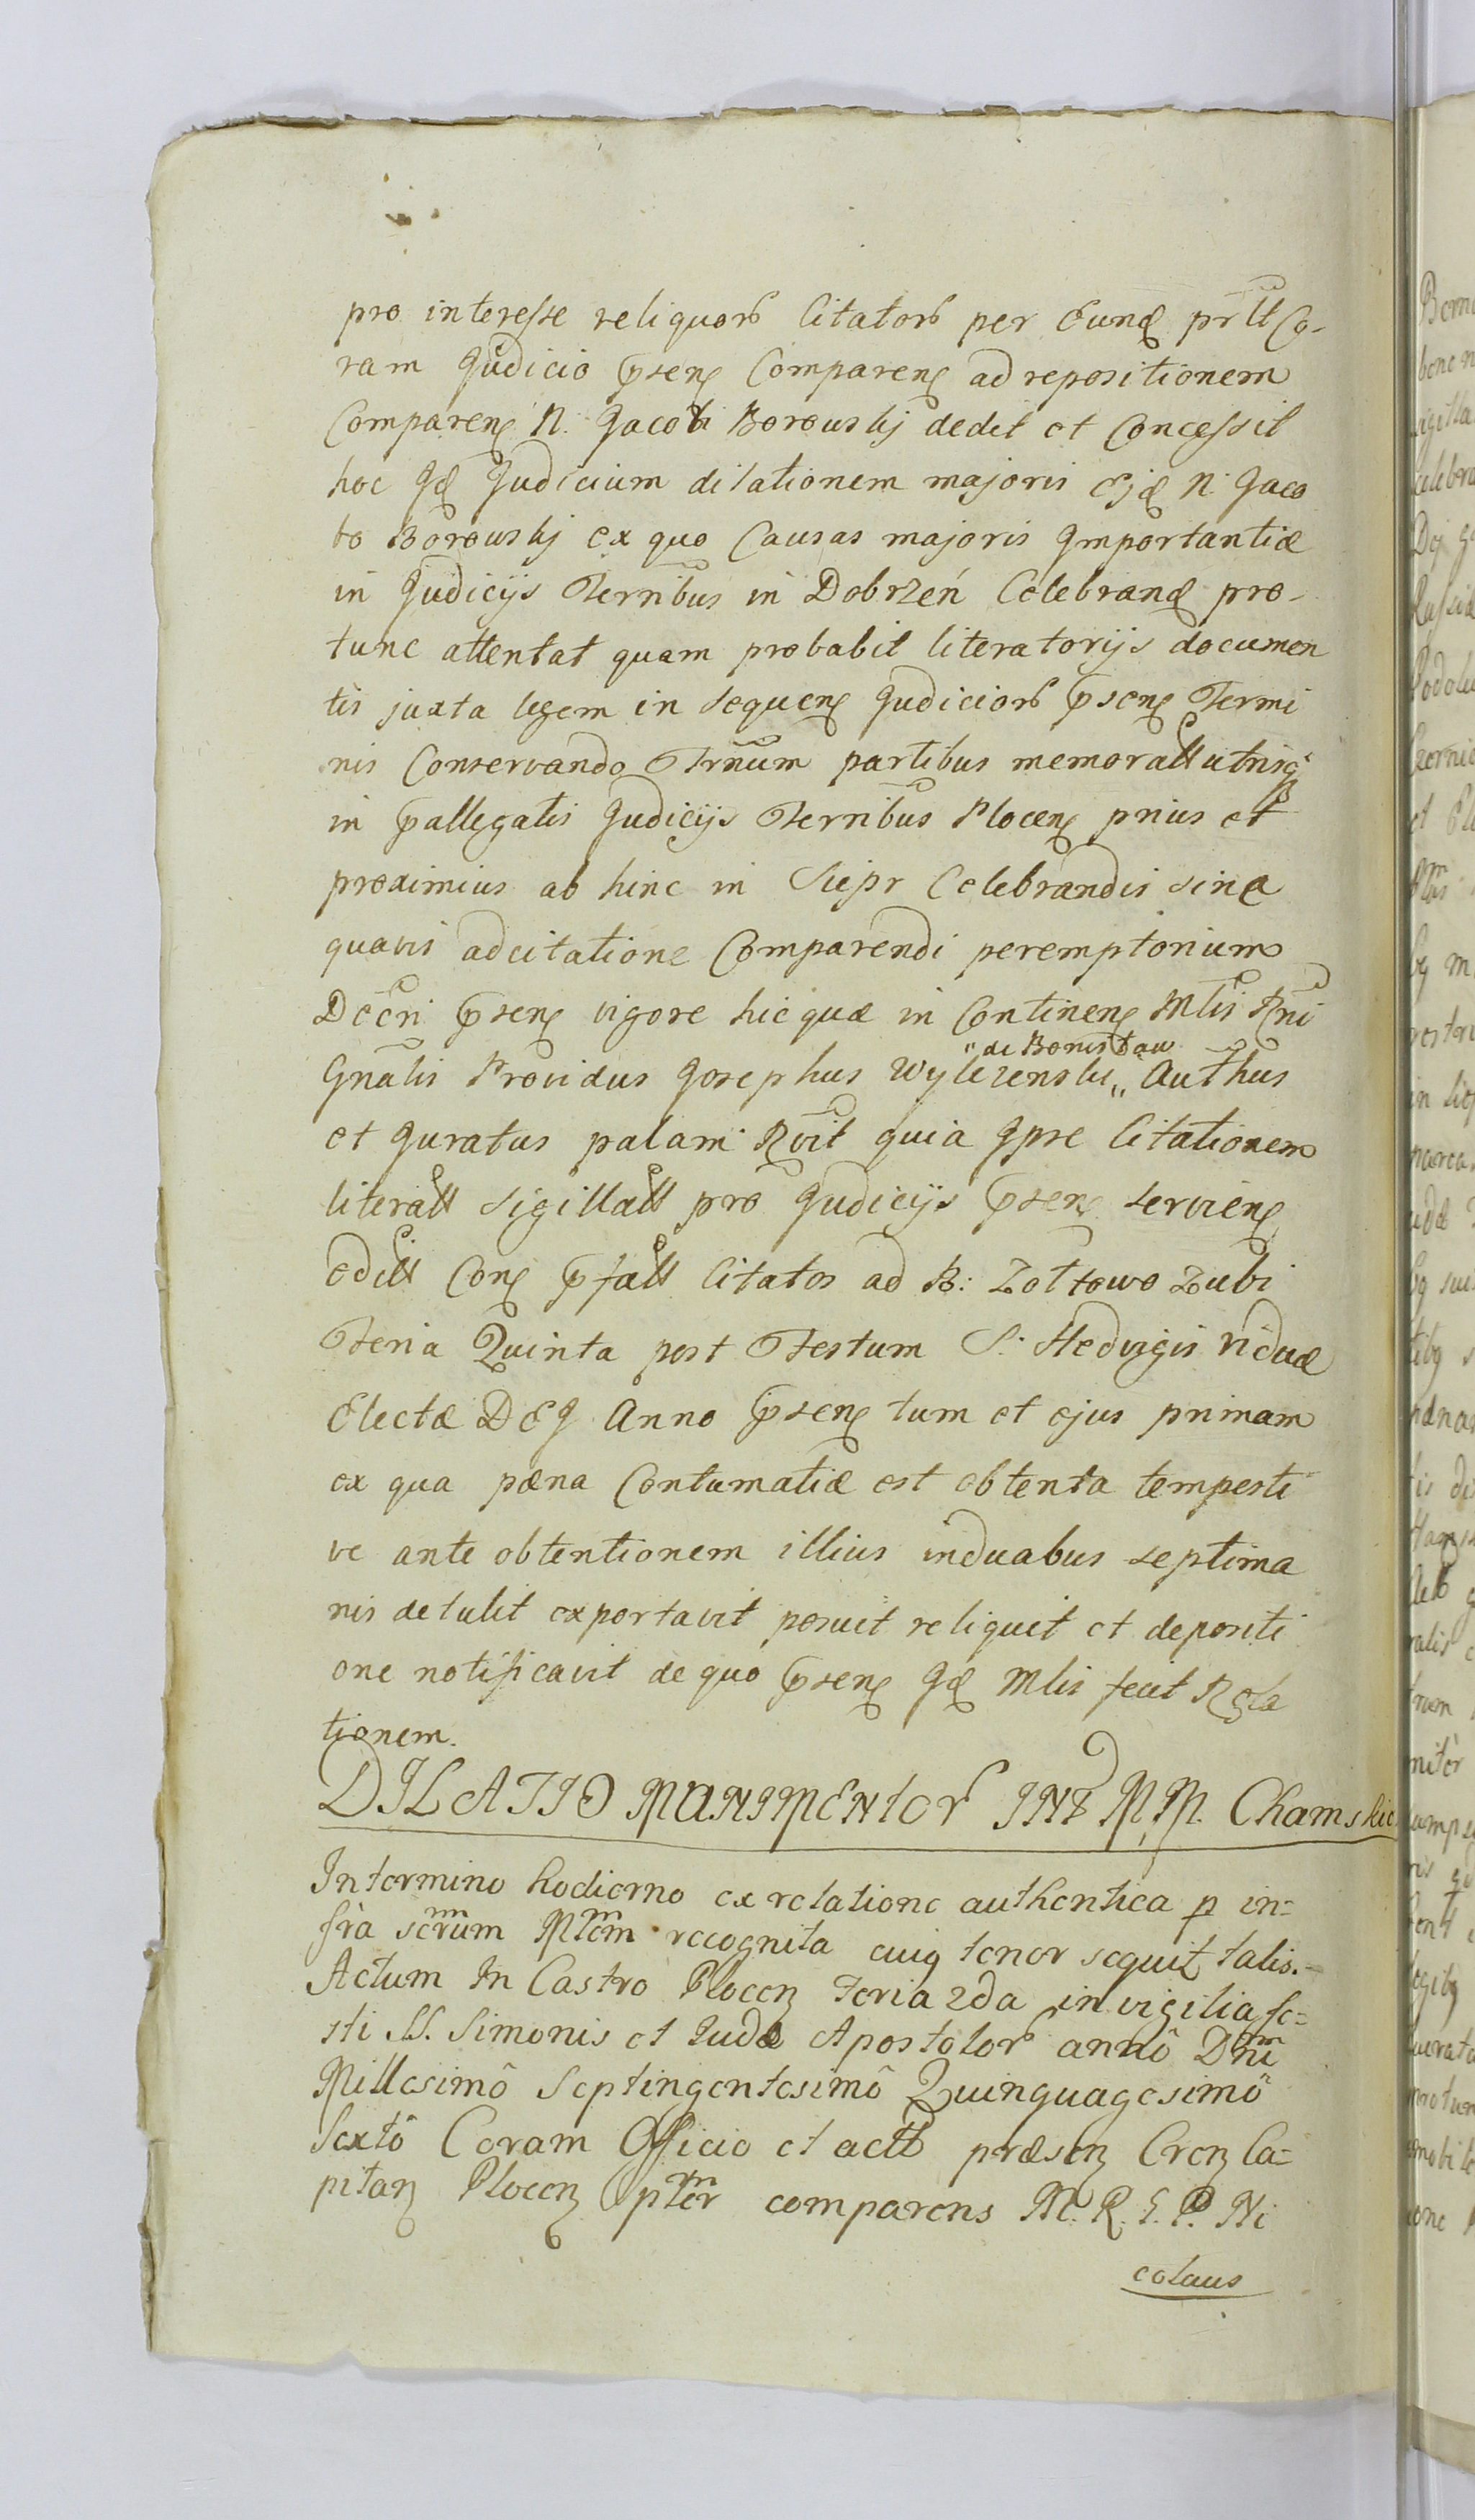 pro interesse reliquorũ Citatorũ per Eund prltt Co-
ram Judicio psen Comparen ad repositionem
Comparen N. Jacobi Borowskj dedit et Concessit
hoc Jd Judicium dilationem majoris Ejd N. Jaco
bo Borowskj ex quo Causas majoris Importantiæ
in Judicijs Terribus in Dobrzeń Celebrand pro-
tunc attentat quam probabit literatorijs documen
tis juxta legem in sequen Judiciorũ psen Termi
nis Conservando Trnum partibus memoratt utrisq
in pallegatis Judicijs Terribus Plocen prius et
proximius ab hinc in Siepr Celebrandis sine
quavis adcitatione Comparendi peremptorium
Decri psen vigore hicquæ in Continen Mlis Rni
"de Bonisław
Gnalis Providus Josephus Wylezenski „ Authus
et Juratus palam Rvit quia Ipse Citationem
literatt Sigillatt pro Judicijs psen servien
editt Con pfatt Citatos ad B: Zołtowo Zubi
Feria Quinta post Festum S. Hedvigis Viduæ
Electæ DEJ Anno psen tum et ejus primam
ex qua pæna Contumatiæ est obtenta tempesti
ve ante obtentionem illius induabus septima
nis detulit exportavit posuit reliquit et depositi
one notificavit de quo psen Jd Mlis fecit Rela
tionem.
DILATIO MUNIMENtor INt M.M. Chamskie
In termino hodierno ex relatione authentica p in=
fra scrum Mlem recognita cuiq tenor sequit talis.-
Actum In Castro Plocen Feria 2da in vigilia fe=
sti SS. Simonis et Judæ Apostolor annô Dni
Millesimô Septingentesimô Quinquagesimô
Sextô Coram Officio et actt præsen Cren Ca=
pitan Plocen pler comparens M. R. S. P. Ni
colaus